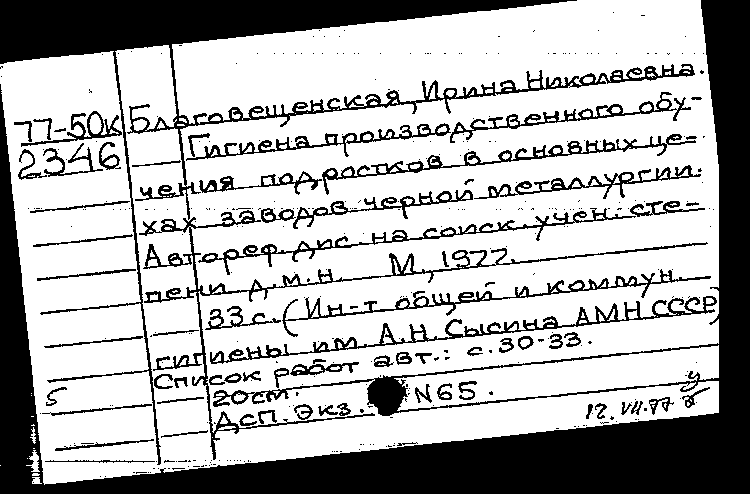 77-50к Благовещенская, Ирина Николаевна.
2346 Гигиена производственного обу-
чения подростков в основных це-
хах заводов черной металлургии.
Автореф. дис. на соиск. учен. сте-
пени д.м.н. М., 1977.
33 с. (Ин-т общей и коммун.
гигиены им. А.Н. Сысина АМН СССР)
Список работ авт.: с. 30-33.
5 20 см.
Дсп. Экз. N65.
12.VII.77 у